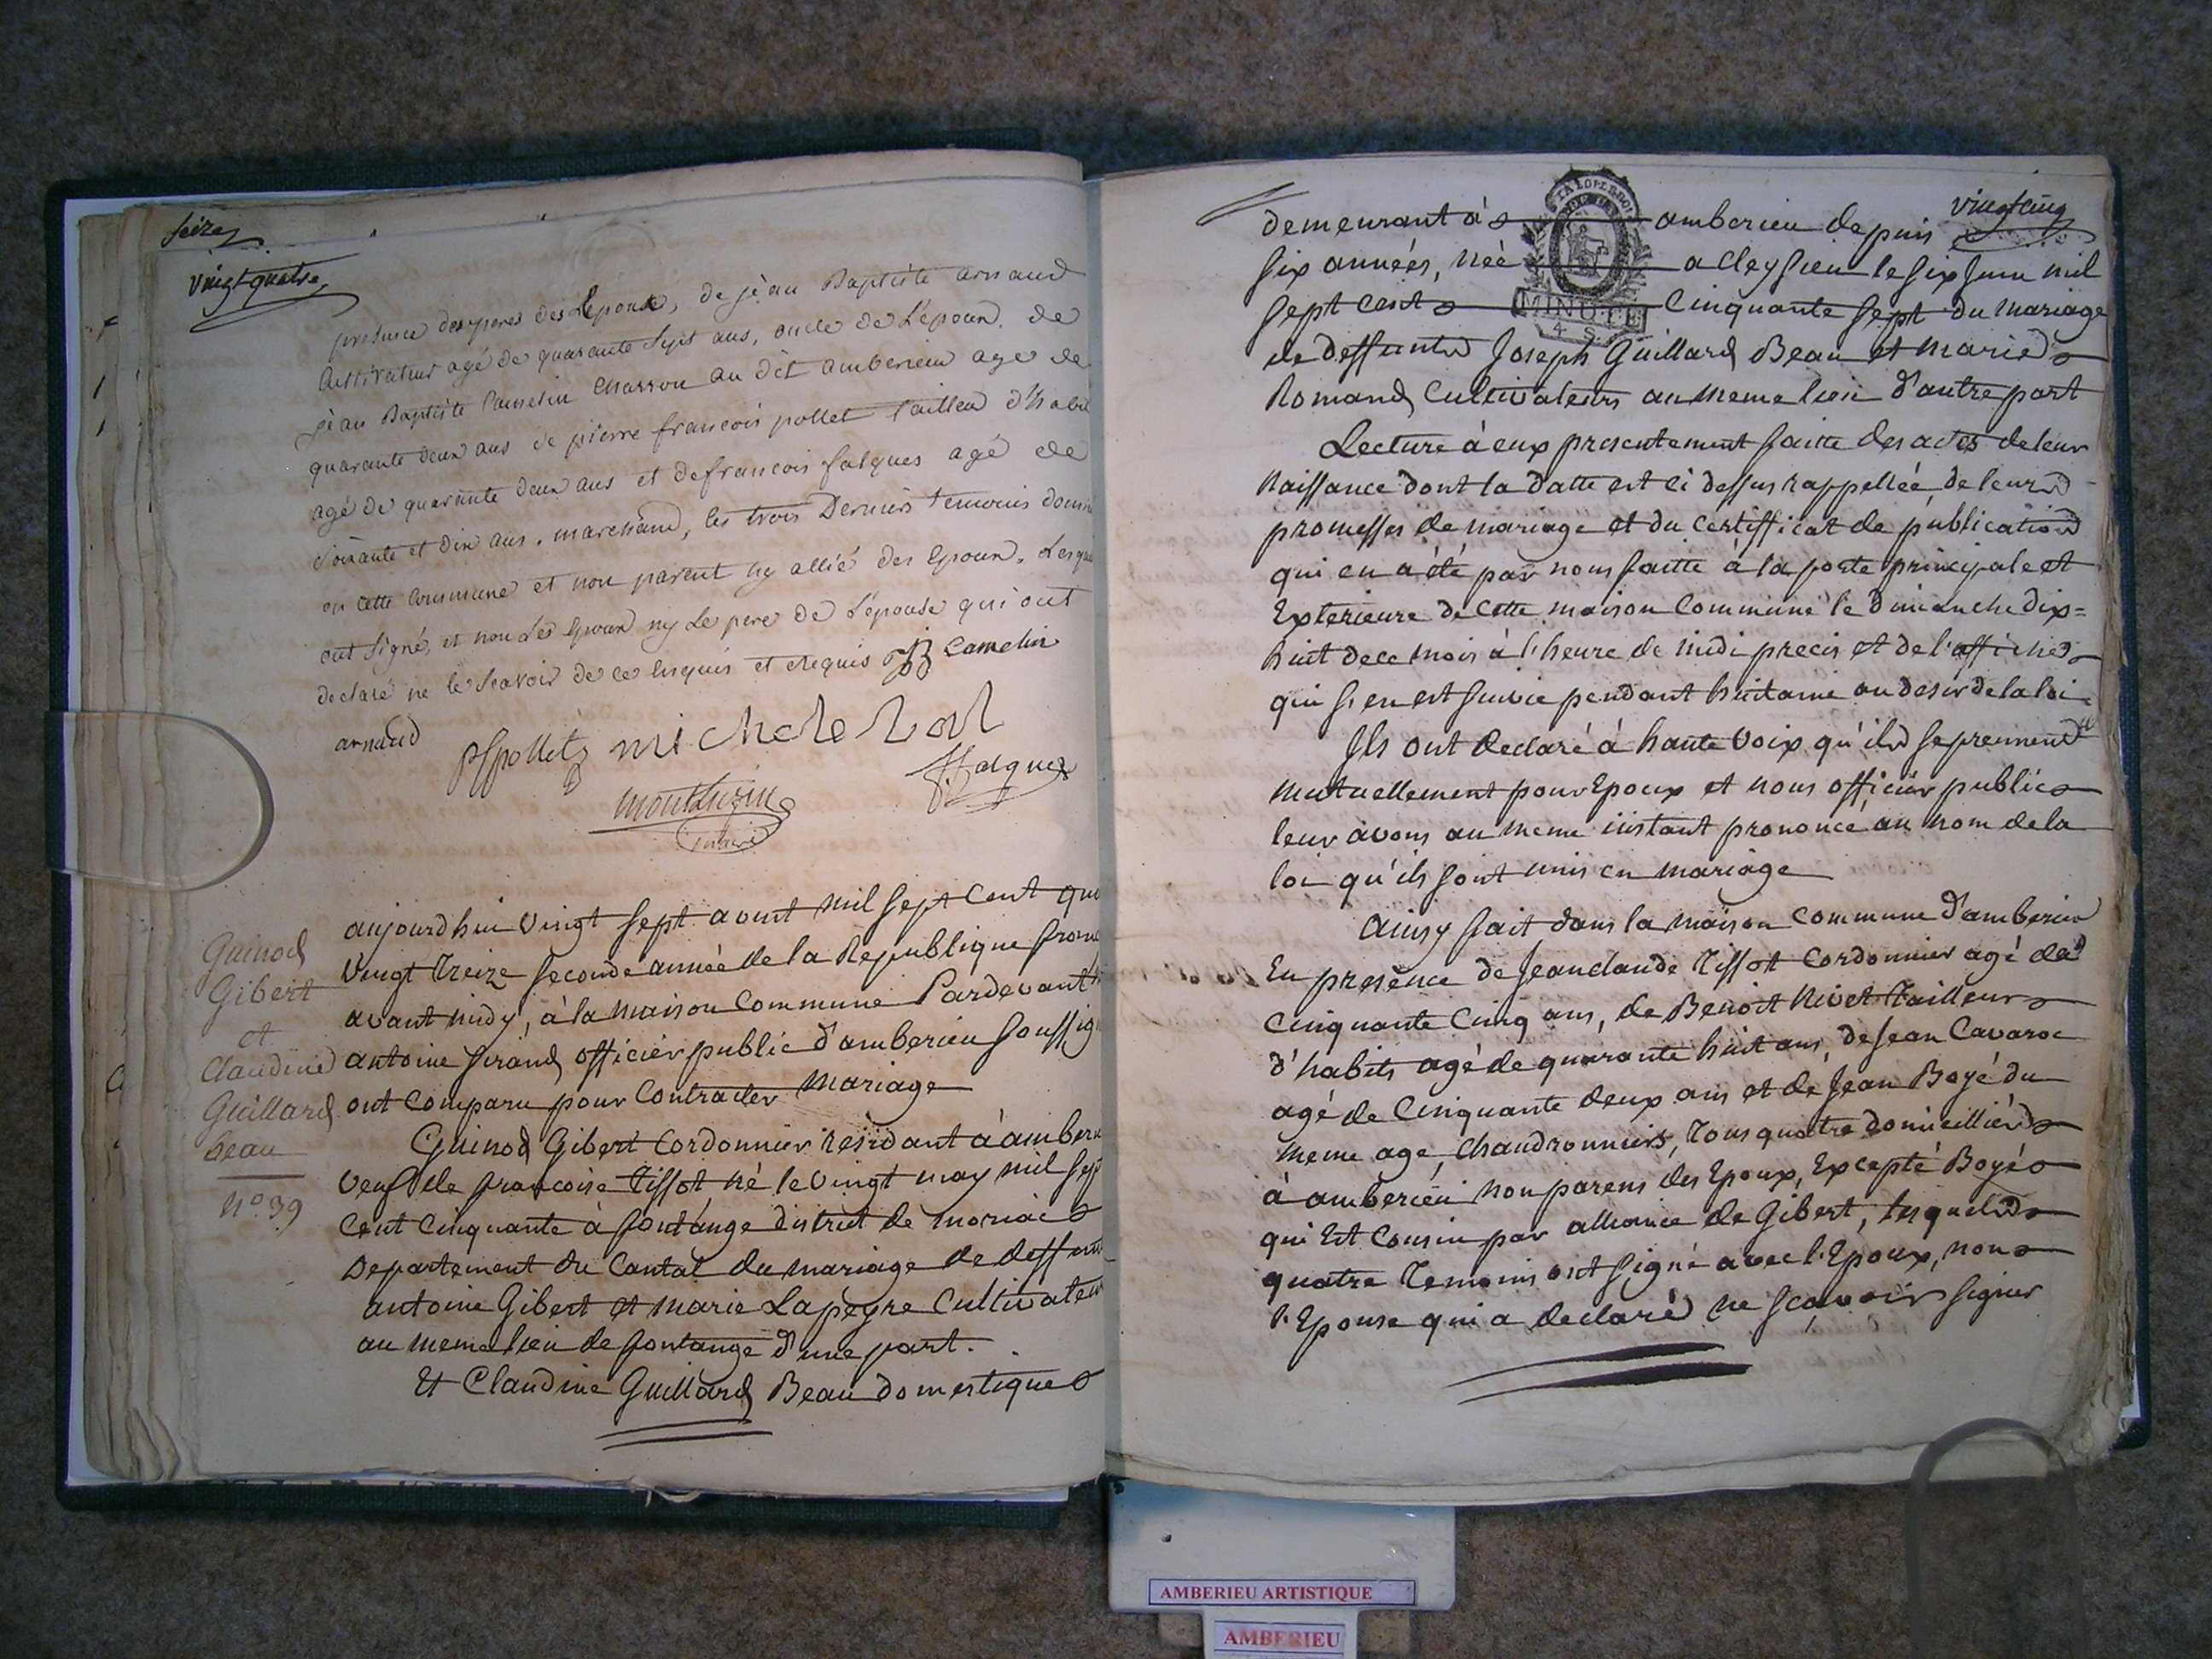 seize
vingt quatre
presence des peres des Epoux, de jèan Baptiste arnaud
Cultivateur agé de quarante sept ans, oncle de L'époux. de
jèan Baptiste Camelin charron au dit amberieu age de
quarante deux ans de pierre francois pollet tailleur d'habit
agé de quarante deux ans et de francois falques agé de
soixante et dix ans. marchand, les trois Derniers temoins domi
en cette commune et non parent ny allié des Epoux. Lesque
ont signé, et non Les Epoux ny Le pere de L'épouse qui ont
declaré ne le scavoir de ce enquis et requis JB Camelin
arnaud
pfpollet michel
ffalques
montluzin
maire
Guinod
Gibert
et
Claudine
Guillard
beau
n° 39
aujourdhui vingt sept aoust mil sept Cent qua
vingt treize seconde année de la Republique franc
avant midy, à la maison Commune Pardevant
antoine sirand officier public d'amberieu soussig
ont comparu pour Contracter mariage
Guinod Gibert Cordonnier residant à amberi
veuf de francoise tissot né le vingt may mil sept
Cent Cinquante à fontange district de moriac
Departement du Cantal du mariage de deffun
antoine Gibert et marie Lapeyre Cultivateur
au meme lieu de fontange d'une part.
Et Claudine Guillard Beau domestique
vingt cinq
demeurant à amberieu depuis
six années, néé a cleysieu le six juin mil
sept cent Cinquante sept du mariage
MINUTE
4 S.
de deffunts Joseph Guillard Beau et marie
Romand Cultivateurs au meme lieu d'autre part
Lecture à eux presentement faitte des actes de leur
Naissance dont la datte est ci dessus rappelléé, de leurs
promesses de mariage et du certifficat de publication
qui en a été par nous faitte à la porte principale et
Exterieure de cette maison Commune le dimanche dix=
huit de ce mois à l'heure de midi precis et de l'affiche
qui s'en est suivie pendant huitaine au desir de la loi
Ils ont declaré à haute voix qu'ils se prennent
mutuellement pour Epoux et nous officier public
leur avons au meme instant prononcé au nom de la
loi qu'ils sont unis en mariage
Ainsy fait dans la maison Commune d'amberieu
En presence de Jeanclaude Tissot Cordonnier agé de
Cinquante Cinq ans, de Benoit Nivet Tailleur
d'habits agé de quarante huit ans, de Jean Cavaroc
agé de Cinquante deux ans et de Jean Boyé du
meme age, Chaudronniers, Tous quatre domicilliés
à amberieu non parens des Epoux, Excepté Boyé
qui Est Cousin par alliance de Gibert, lesquels
quatre Temoins ont signé avec l'Epoux, non
l'Epouse qui a declaré ne sçavoir signer
AMBERIEU ARTISTIQUE
AMBERIEU